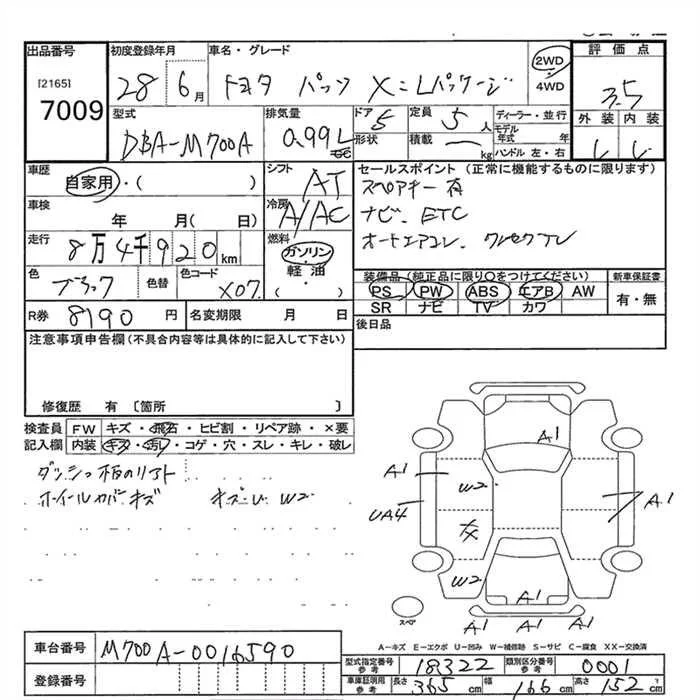 出品番号 初度登録年月 車名・グレード 2WD 4WD 評価点
[2165] 7009 28 6月 トヨタ パッソ X=Lパッケージ 3.5
型式 排気量 ドア 定員 ディーラー・並行 外装 内装
DBA-M700A 0.99L 5 5人 モデル年式 年
形状 積載 kg ハンドル 左・右
車歴 シフト セールスポイント(正常に機能するものに限ります)
自家用・( ) AT スペアキー有
車検 冷房 ナビ. ETC
年 月( 日) A/AC オートエアコン. ワンセグTV
走行 燃料
8万4千920km ガソリン 装備品(純正品に限り○をつけてください) 新車保証書
色 色替 色コード 軽油 PS PW ABS エアB AW 有・無
ブラック X07 ・( ) SR ナビ TV カワ
R券 8190円 名変期限 月 日 後日品
注意事項申告欄(不具合内容等は具体的に記入して下さい)
修復歴 有〔箇所 〕
検査員 FW キズ・飛石・ヒビ割・リペア跡・×要
記入欄 内装 キズ・汚レ・コゲ・穴・スレ・キレ・破レ
ダッシュ板のリフト
ホイールカバーキズ キズU W2
A1
A1 W2 A1
UA4 X
W2
A1
スペア A1 A1 A1
A-キズ E-エクボ U-凹み W-補修跡 S-サビ C-腐食 XX-交換済
車台番号 M700A-0016590 型式指定番号 参考 18322 類別区分番号 参考 0001
登録番号 車庫証明用 参考 長さ 365cm 幅 166cm 高さ 152cm